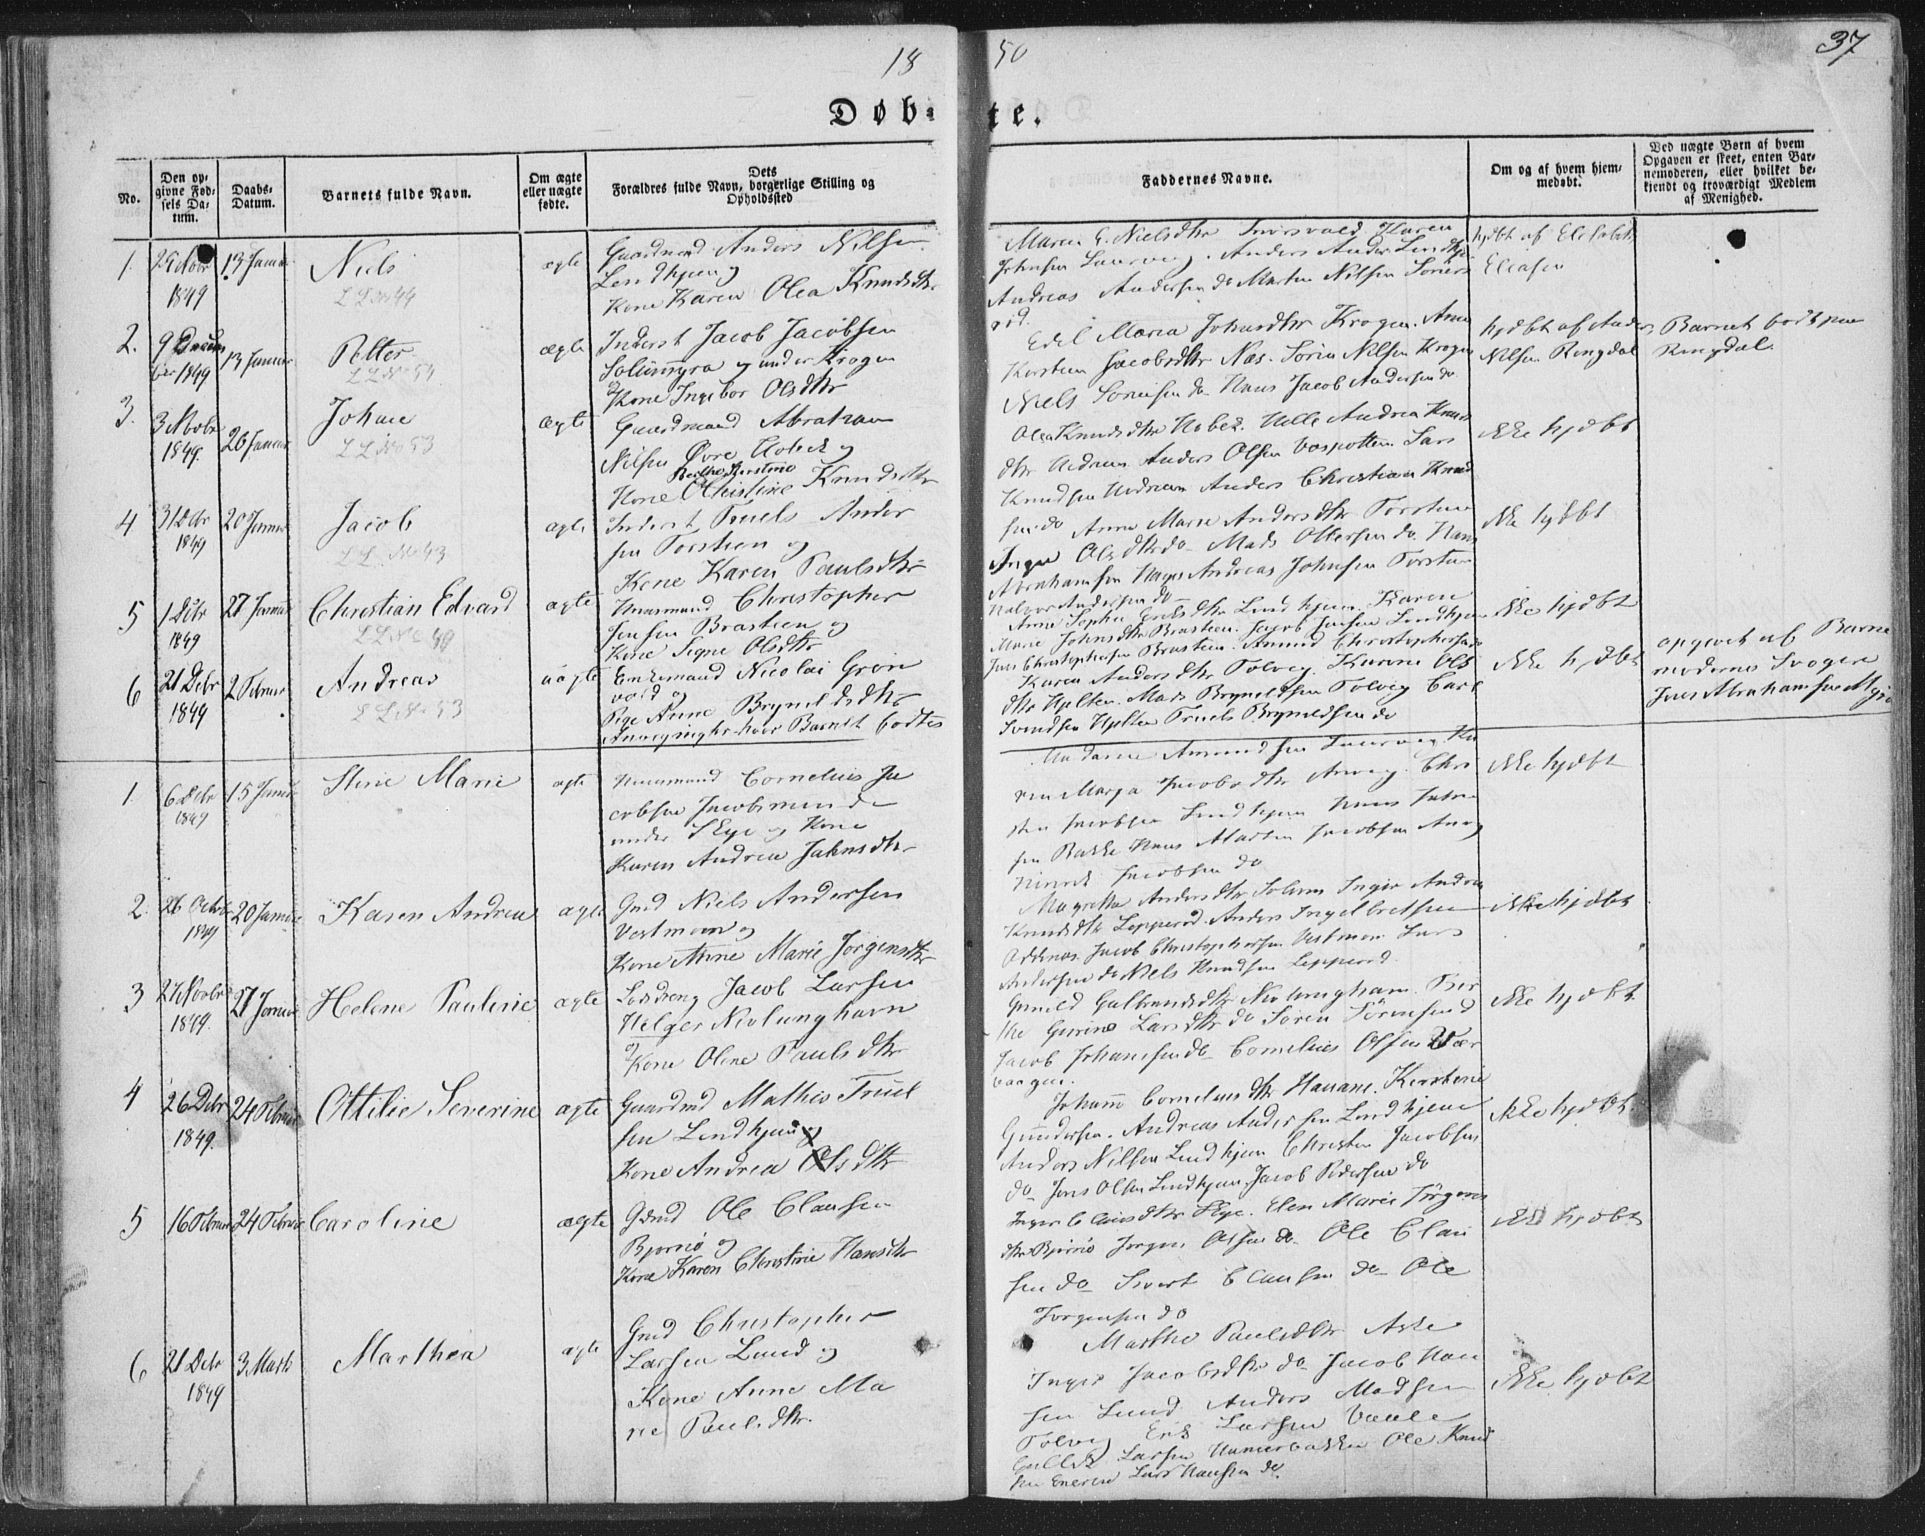 18 50
37
Døb- te.
No.
Den op-
givne Fød-
sels Da-
tum.
Daabs-
Datum.
Barnets fulde Navn.
Om ægte
eller uægte
fødte.
Dets
Forældres fulde Navn, borgerlige Stilling og
Opholdssted
Faddernes Navne.
Om og af hvem hjem-
medøbt.
Ved uægte Børn af hvem
Opgaven er skeet, enten Bar-
nemoderen, eller hvilket be-
kjendt og troværdigt Medlem
af Menighed.
1. 29 Novbr 1849
13 Januar
Niels
L L No 44
ægte
Gaardmand Anders Nilsen
Lindhjem og
Kone Karen Olea Knudsdtr
Maren G. Nielsdtr Karen
Johnsen Laurvig. Anders Anders Lindhj
Andreas Andersen do Martin Nilsen
rød.
hjdbt af Elisabeth
Eleasen
2. 9 Decem
ber 1849
13 Januar
Petter
L L No 54
ægte
Inderst Jacob Jacobsen
Solumsmyra under Krogen
og Kone Ingebor Olsdtr
Edel Maria Johnsdtr Krogen. Anne
Kirstin Jacobsdtr Næs. Søren Nilsen Krogen
Niels Sørensen do Hans Jacob Andersen do
hjdbt af Anders
Nilsen Ringdal
Barnet født paa
Ringdal.
3. 3 Novbr
1849.
26 Januar
Johan
L L No 53
ægte
Gaardmand Abraham
Nilsen Øvre Hobek og
Kone Christine Knudsdtr
Olea Knudsdtr Hobek. Helle Andrea Knuds
dtr Anders Olsen Lars
Knudsen Anders Christian Knud
sen do
ikke hjdbt
4 31 Decbr
1849
20 Januar
Jacob
L L No 43
ægte
Inderst Truels Ander
sen Torstien og
Kone Karen Paulsdtr
Anne Marie Andersdtr Torstien
Inger Olsdtr do Mads Ottersen do Hans
Abrahamsen Andreas Johnsen Torstein
Halvor Andersen do
ikke hjdbt
5 1 Decbr
1849
27 Januar
Christian Edvard
L L No 49
ægte
Huusmand Christopher
Jensen Brastien og
Kone Signe Olsdtr
Anne Sophie Lindhjem Karen
Marie Johnsdtr Brastien. Jacob Jensen Lindhjem
Jens Christophersen Brastein. Amund Christophersen
ikke hjdbt
6 21 Decbr
1849
2 Februar
Andreas
L L No 53
uægte
Enkemand Nicolai Grøn
vold og
Pige Anne Brynildsdtr
hvor Barnet fødtes
Karen Andersdtr Tolvig Karine Ols
dtr Hjelten. Mads Brynildsen Tolvig Carl
Svendsen Hjelten Truels Brynildsen do
ikke hjdbt
opgivet af Barne
moderens Svoger
Jens Abrahamsen
1. 6 Decbr
1849
15 Januar
Stine Marie
ægte
Huusmand Cornelius Ja
cobsen Jacobs minde
under Skye og Kone
Karen Andrea Jahnsdtr
Amundsen Laurvig Ka
ren Marja Jacobsdtr Chri
sten Jacobsen Lindhjem Hans
sen Bakke Hans Martin Jacobsen
Hinrik Jacobsen do
ikke hjdbt
2. 26 Octobr
1849
20 Januar
Karen Andrea
ægte
Gmd Niels Andersen
Vestmoen og
Kone Anne Marie Jørgensdtr
Magrethe Andersdtr Solum Inger Andrea
Knudsdtr Lepperød. Anders Ingelbretsen
Jacob Christophersen Vestmoen Lars
Andersen do Niels Knudsen Lepperød
ikke hjdbt
3 27 Novbr
1849.
27 Januar
Helene Pauline
ægte
Lodsdreng Jacob Larsen
Helger Nevlunghavn
og Kone Olene Paulsdtr
Gunild Gulbrandsdtr Nevlunghavn. Bir
the Gurine Larsdtr do Søren Sørensen do
Jacob Johansen do Cornelius Olsen Vær
vaagen.
ikke hjdbt
4 26 Decbr
1849.
24 Februar
Ottilie Severine
ægte
Gaardmd Mathis Truel
sen Lindhjem og
Kone Andrea Olsdtr
Johanne Corneliusdtr Havane. Kirstene
Gundersen. Andreas Andersen Lindhjem
Anders Nilsen Lindhjem Christen Jacobsen
do Jens Olsen Lindhjem Jacob Pedersen do
ikke hjdbt
5 16 Februar
24 Februar
Caroline
ægte
Gdmd Ole Clausen
Bjønnø og
Kone Karen Christine Hansdtr
Inger Clausdtr Skye. Elen Marie Jørgens
dtr Bjønnø Jørgen Olsen do Ole Clau
sen do Sivert Clausen do Ole
Jørgensen do
ikke hjdbt
6 21 Decbr
1849
3 Marts
Marthea
ægte
Gmd Christopher
Larsen Lund og
Kone Anne Ma
rie Paulsdtr.
Marthe Paulsdtr Aske
Inger Jacobsdtr do Jacob Han
sen Lund Anders Madsen
Tolvig Erik Larsen Vaale
Gullik Larsen Hammerbakken Ole Knud
sen Lars Hansen do.
ikke hjdbt